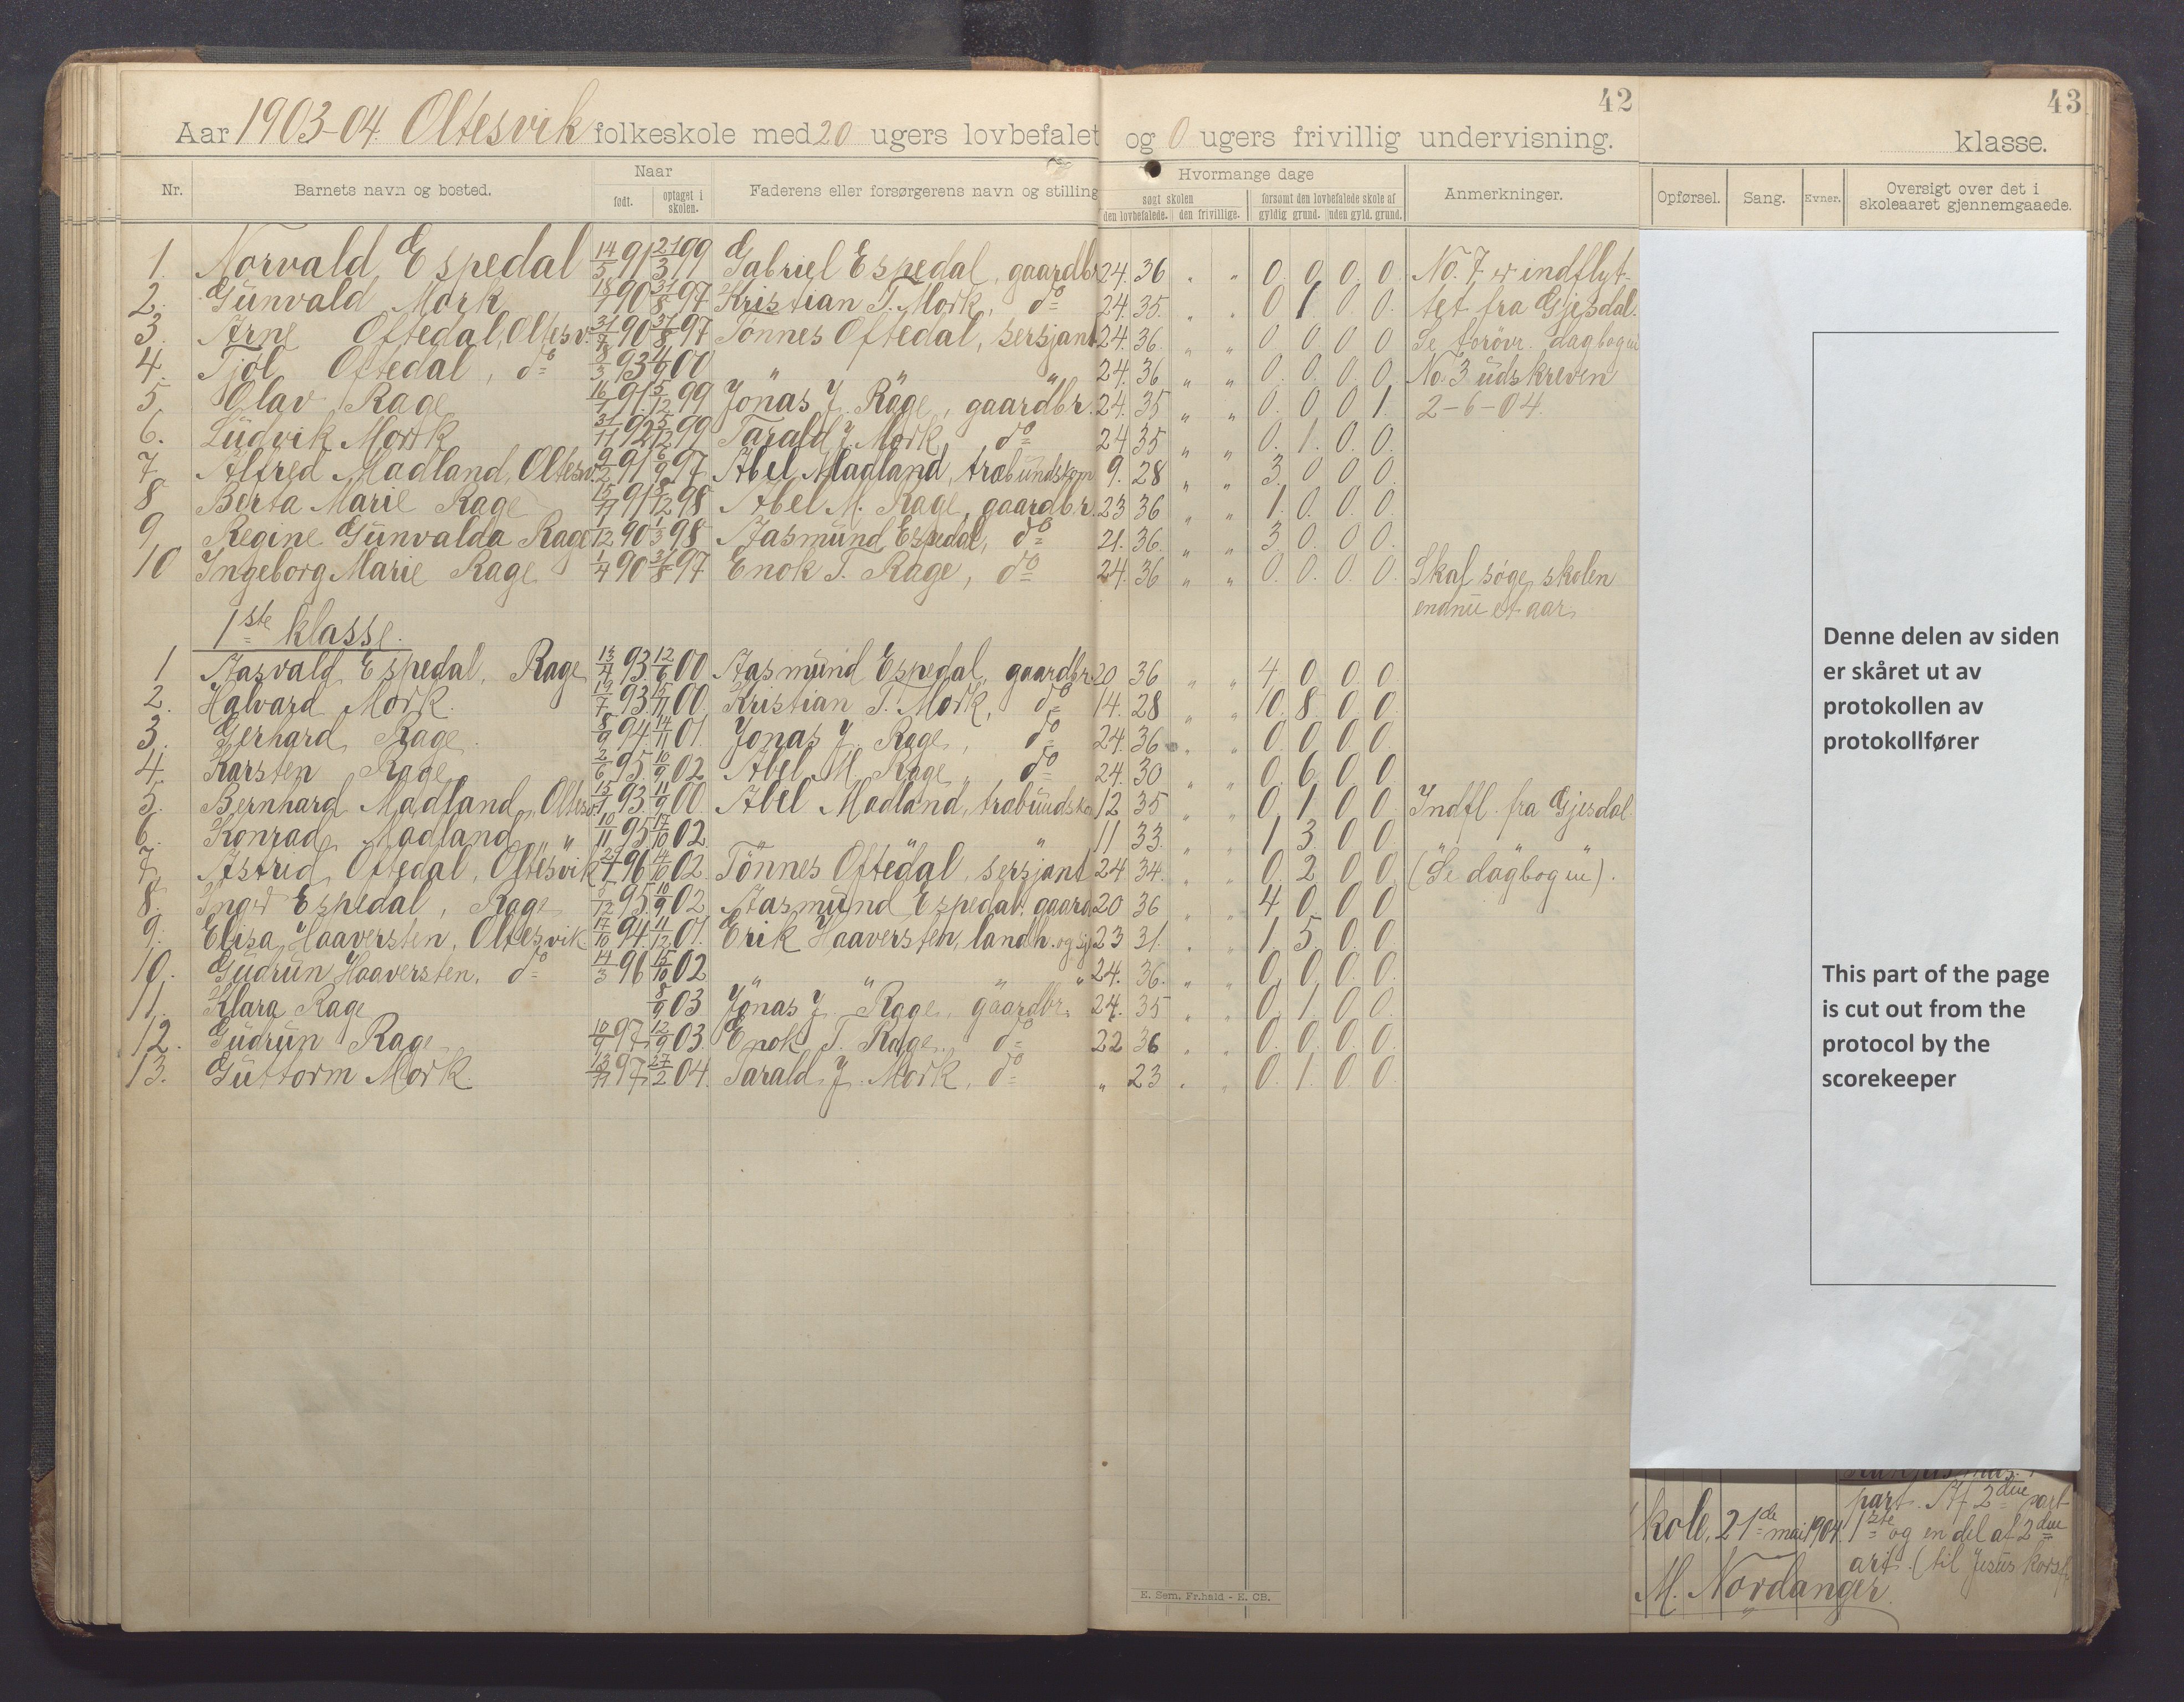 42
43
Aar 1903-04. Oltesvik folkeskole med 20 ugers lovbefalet og 0 ugers frivillig undervisning.
klasse.
Nr. Barnets navn og bosted. Naar født. optaget i skolen. Faderens eller forsørgerens navn og stilling Hvormange dage søgt skolen den lovbefalede. den frivillige. forsømt den lovbefalede skole af gyldig grund. uden gyld. grund. Anmerkninger. Opførsel. Sang. Evner. Oversigt over det i skoleaaret gjennemgaaede.
1. Norvald Espedal 14/5 91 21/3 99 Gabriel Espedal, gaardbr. 24. 36 " " 0 0 0 0 No. 7 er indflyt-
2. Gunvald Mork 18/7 90 31/8 97 Kristian T. Mork, do 24. 35. " " 0 1 0 0 tet fra Gjesdal.
3. Arne Oftedal, Oltesv. 31/7 90 31/8 97 Tønnes Oftedal, sersjant 24. 36. " " 0. 0. 0 0 Se forøvr. dagbogen
4. Tjøl Oftedal, do 8/5 93 4/9 00 " " " 24. 36 " " 0. 0. 0. 0. No. 3 udskreven
5 Olav Rage 16/1 91 5/12 99 Jonas J. Rage, gaardbr. 24. 35 " " 0. 0 0 1. 2-6-04.
6. Ludvik Mork 31/11 92 5/12 99 Tarald J. Mork, do 24 35 " " 0. 1. 0. 0.
7 Alfred Madland, Oltesv. 9/2 91 6/9 97 Abel Madland, træbundskom 9. 28 " " 3. 0. 0. 0.
8 Berta Marie Rage 15/11 91 5/12 98 Abel M. Rage, gaardbr. 23 36 " " 1. 0. 0. 0.
9 Regine Gunvalda Rage 1/12 90 1/3 98 Aasmund Espedal, do 21. 36. " " 3 0. 0. 0.
10 Ingeborg Marie Rage 1/4 90 31/8 97 Enok T. Rage, do 24. 36 " " 0. 0. 0. 0. Skal søge skolen
endnu et aar.
1ste klasse.
1 Aasvald Espedal, Rage 13/4 93 12/6 00 Aasmund Espedal, gaardbr. 20 36 " " 4 0 0 0
2. Halvard Mork. 19/7 93. 15/11 00. Kristian T. Mork, do 14. 28 " " 10. 8. 0 0
3. Gerhard Rage. 8/9 94. 14/11 01. Jonas J. Rage, do 24. 36 " " 0. 0. 0. 0.
4. Karsten Rage 2/6 95. 10/9 02 Abel M. Rage, do 24. 30 " " 0. 6. 0. 0
5. Bernhard Madland, Oltesv. 15/1 93. 11/9 00. Abel Madland, træbundsko 12 35 " " 0. 1 0 0 Indfl. fra Gjesdal.
6. Konrad Madland " 10/11 95 17/10 02. " " 11 33. " " 1 3. 0 0 " " "
7. Astrid Oftedal, Oltesvik 29/1 96 14/10 02. Tønnes Oftedal, sersjant 24 34. " " 0. 2 0 0 (Se dagbogen).
8. Inger Espedal, Rage 5/12 95. 10/9 02 Aasmund Espedal, gaard 20 36 " " 4 0 0 0
9. Elisa Haaversten, Oltesvik 17/10 94. 11/12 01. Erik Haaversten, landh. og 23 31. " " 1. 5 0. 0
10. Gudrun Haaversten, do 14/3 96 15/10 02 " " " 24. 36. " " 0. 0. 0. 0.
11. Klara Rage 8/9 03 Jonas J. Rage, gaardbr. 24. 35 " " 0. 1. 0 0.
12. Gudrun Rage 10/9 97 12/9 03 Enok T. Rage, do 22 36 " " 0. 0. 0. 0
13. Guttorm Mork 13/11 97 27/2 04. Tarald J. Mork, do " 23 " " 0. 1. 0 0
Denne delen av siden
er skåret ut av
protokollen av
protokollfører
This part of the page
is cut out from the
protocol by the
scorekeeper
part. Af 2den part
skole, 21de mai 1904. 1ste og en del af 2den
art. (til Jesus kors
M. Nordanger.
E. Sem, Fr.hald - E. CB.